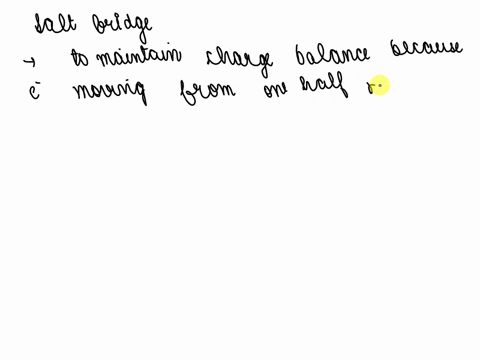 Salt bridge
→ to maintain charge balance because
e⁻ moving from one half